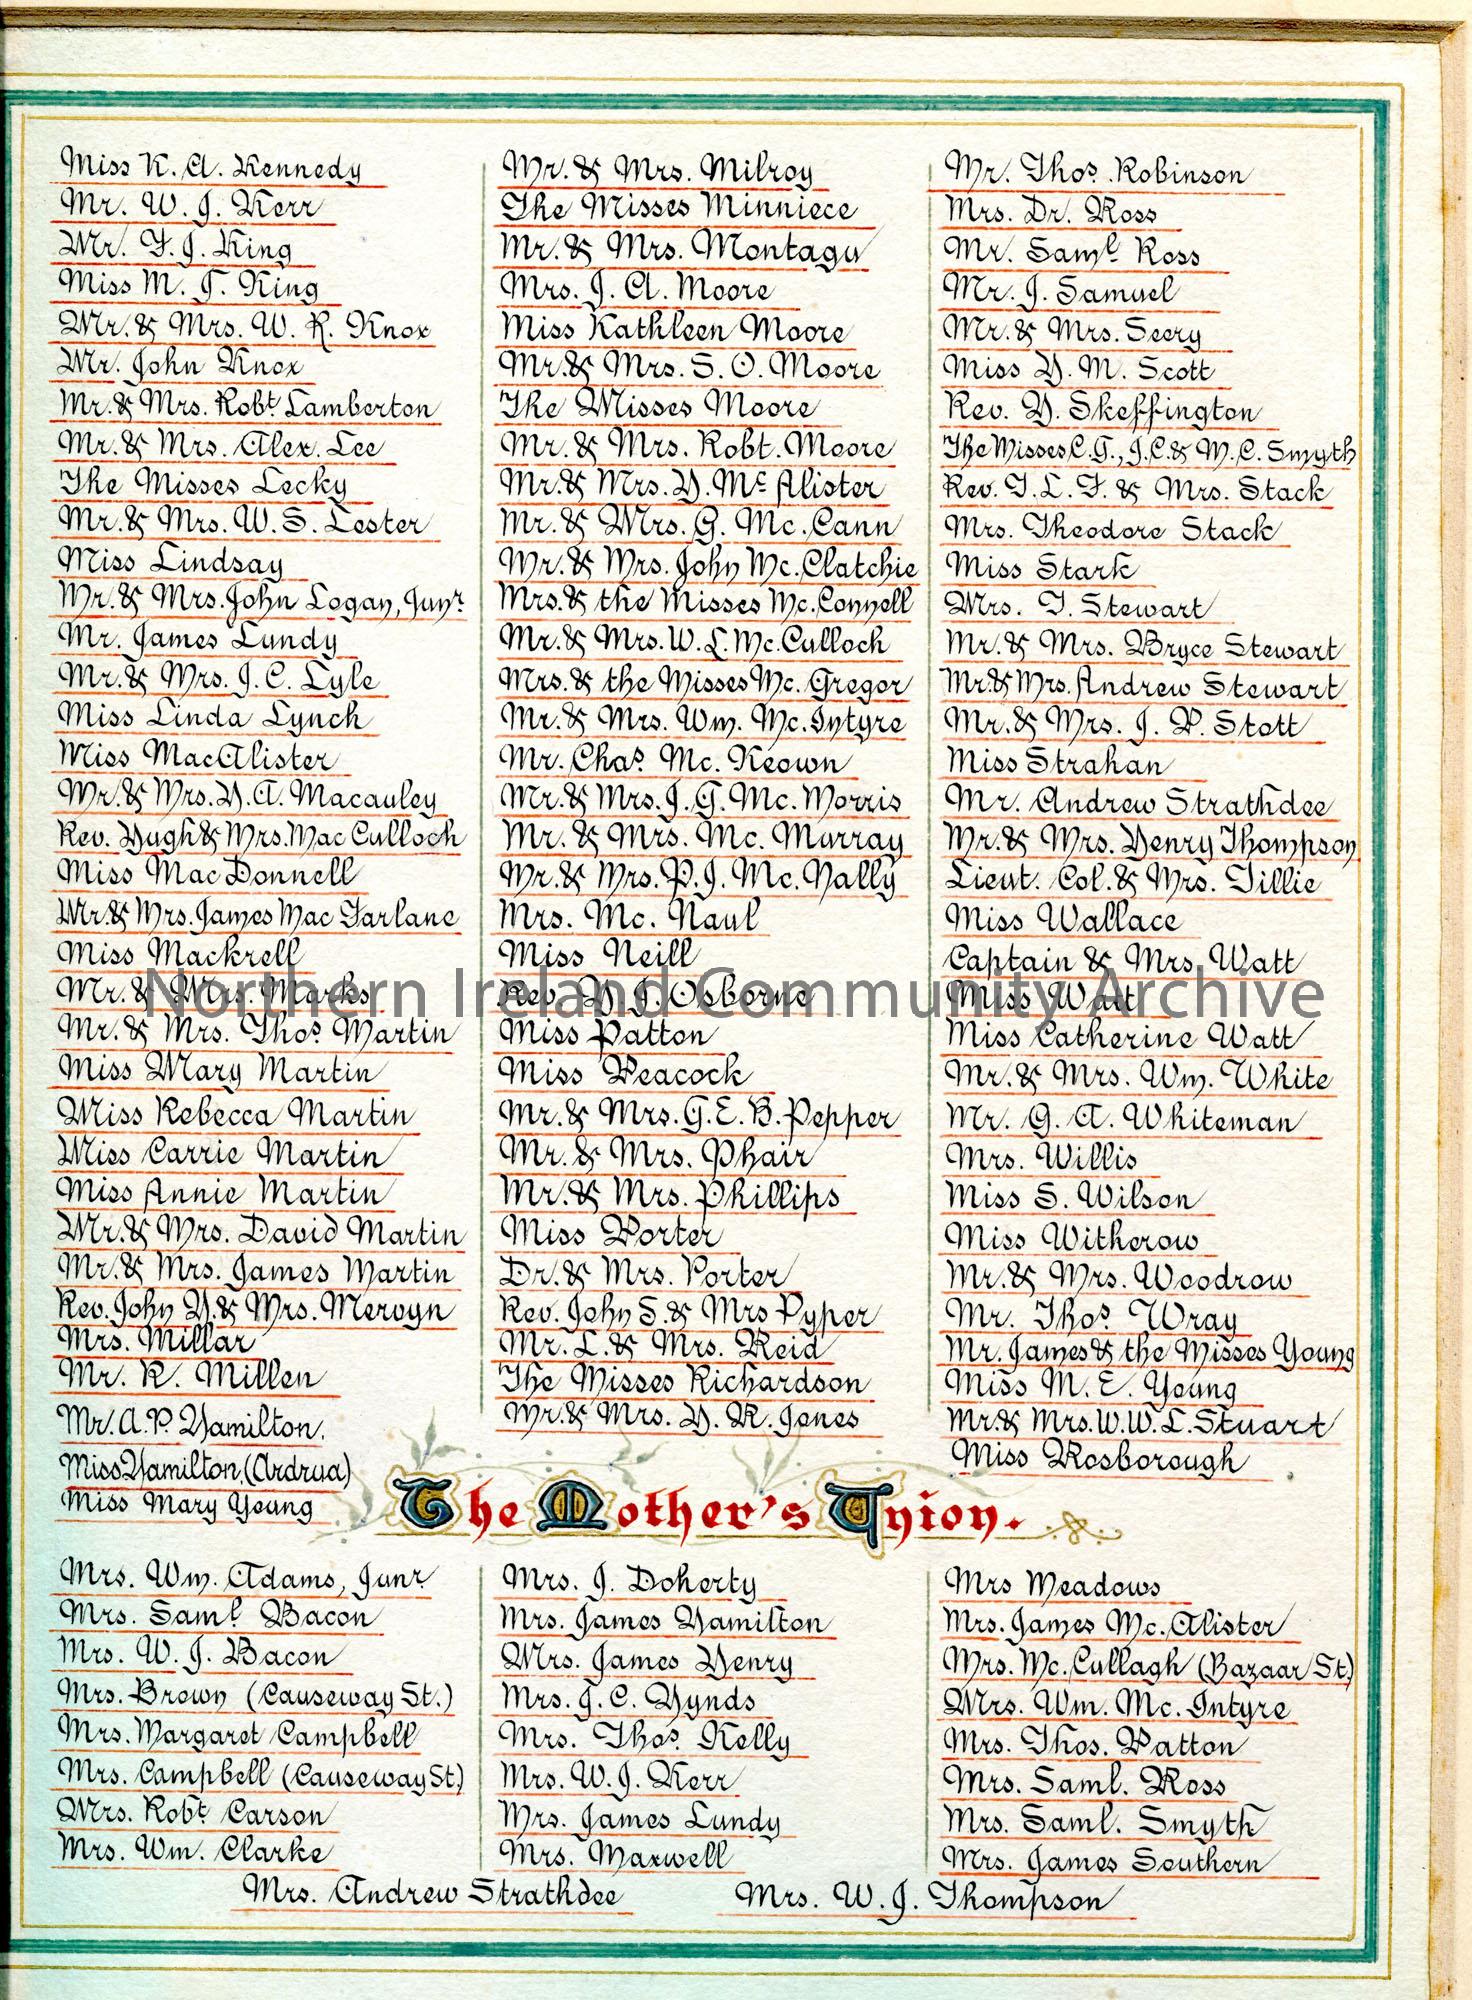 Miss K. A. Kennedy
Mr. W. J. Kerr
Mr. F. J. King
Miss M. T. King
Mr. & Mrs. W. R. Knox
Mr. John Knox
Mr. & Mrs. Robt Lamberton
Mr. & Mrs. Alex. Lee
The Misses Lecky
Mr. & Mrs. W. S. Lester
Miss Lindsay
Mr. & Mrs. John Logan, Junr.
Mr. James Lundy
Mr. & Mrs. J. C. Lyle
Miss Linda Lynch
Miss MacAlister
Mr. & Mrs. H. A. Macauley
Rev. Hugh & Mrs. Mac Culloch
Miss Mac Donnell
Mr. & Mrs. James Mac Farlane
Miss Mackrell
Mr. & Mrs. Marks
Mr. & Mrs. Thos. Martin
Miss Mary Martin
Miss Rebecca Martin
Miss Carrie Martin
Miss Annie Martin
Mr. & Mrs. David Martin
Mr. & Mrs. James Martin
Rev. John H. & Mrs. Mervyn
Mrs. Millar
Mr. R. Millen
Mr. A. P. Hamilton.
Miss Hamilton, (Ardrua)
Miss Mary Young
Mr. & Mrs. Milroy
The Misses Minniece
Mr. & Mrs. Montagu
Mrs. J. A. Moore
Miss Kathleen Moore
Mr. & Mrs. S. O. Moore
The Misses Moore
Mr. & Mrs. Robt. Moore
Mr. & Mrs. H. Mc Alister
Mr. & Mrs. G. Mc. Cann
Mr. & Mrs. John Mc. Clatchie
Mrs. & the Misses Mc. Connell
Mr. & Mrs. W. L. Mc. Culloch
Mrs. & the Misses Mc. Gregor
Mr. & Mrs. Wm. Mc. Intyre
Mr. Chas. Mc. Keown
Mr. & Mrs. J. G. Mc. Morris
Mr. & Mrs. Mc. Murray
Mr. & Mrs. P. J. Mc. Nally
Mrs. Mc. Naul
Miss Neill
Rev. H. J. Osborne
Miss Patton
Miss Peacock
Mr. & Mrs. G. E. B. Pepper
Mr. & Mrs. Phair
Mr. & Mrs. Phillips
Miss Porter
Dr. & Mrs. Porter
Rev. John S. & Mrs Pyper
Mr. L. & Mrs. Reid
The Misses Richardson
Mr. & Mrs. H. R. Jones
Mr. Thos. Robinson
Mrs. Dr. Ross
Mr. Saml. Ross
Mr. J. Samuel
Mr. & Mrs. Seery
Miss H. M. Scott
Rev. H. Skeffington
The Misses C. G., J. C. & M. C. Smyth
Rev. T. L. F. & Mrs. Stack
Mrs. Theodore Stack
Miss Stark
Mrs. T. Stewart
Mr. & Mrs. Bryce Stewart
Mr. & Mrs. Andrew Stewart
Mr. & Mrs. J. P. Stott
Miss Strahan
Mr. Andrew Strathdee
Mr. & Mrs. Henry Thompson
Lieut. Col. & Mrs. Tillie
Miss Wallace
Captain & Mrs. Watt
Miss Watt
Miss Catherine Watt
Mr. & Mrs. Wm. White
Mr. G. A. Whiteman
Mrs. Willis
Miss S. Wilson
Miss Witherow
Mr. & Mrs. Woodrow
Mr. Thos. Wray
Mr. James & the Misses Young
Miss M. E. Young
Mr. & Mrs. W. W. L. Stuart
Miss Rosborough
Northern Ireland Community Archive
The Mother's Union.
Mrs. Wm. Adams, Junr.
Mrs. Saml. Bacon
Mrs. W. J. Bacon
Mrs. Brown (Causeway St.)
Mrs. Margaret Campbell
Mrs. Campbell (Causeway St.)
Mrs. Robt. Carson
Mrs. Wm. Clarke
Mrs. J. Doherty
Mrs. James Hamilton
Mrs. James Henry
Mrs. J. C. Hynds
Mrs. Thos. Kelly
Mrs. W. J. Kerr
Mrs. James Lundy
Mrs. Maxwell
Mrs Meadows
Mrs. James Mc. Alister
Mrs. Mc. Cullagh (Bazaar St.)
Mrs. Wm. Mc. Intyre
Mrs. Thos. Patton
Mrs. Saml. Ross
Mrs. Saml. Smyth
Mrs. James Southern
Mrs. Andrew Strathdee
Mrs. W. J. Thompson